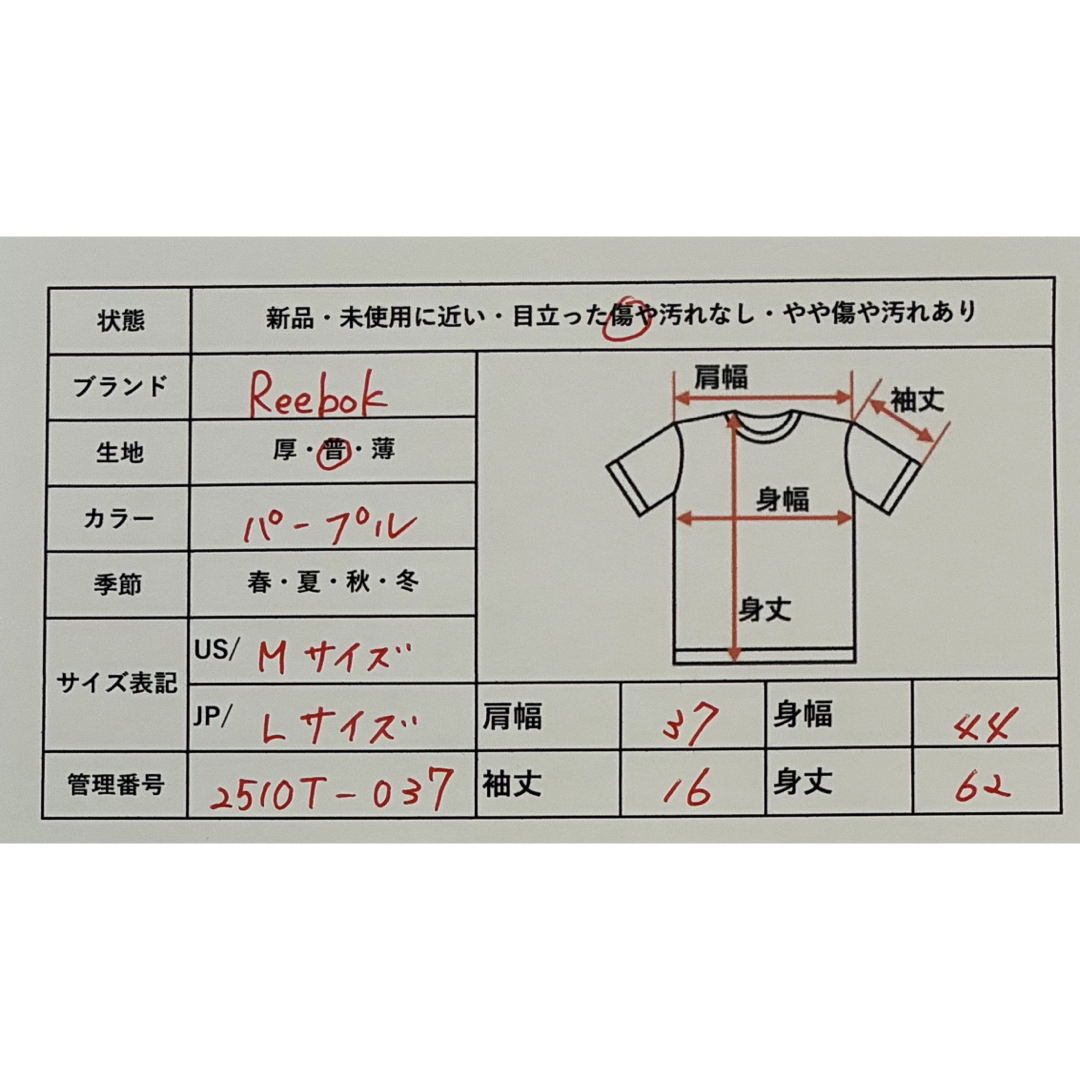 状態 新品・未使用に近い・目立った傷や汚れなし・やや傷や汚れあり
ブランド Reebok
生地 厚・普・薄
カラー パープル
季節 春・夏・秋・冬
サイズ表記
US/ Mサイズ
JP/ Lサイズ
管理番号 2510T-037
肩幅
袖丈
身幅
身丈
肩幅 37 身幅 44
袖丈 16 身丈 62